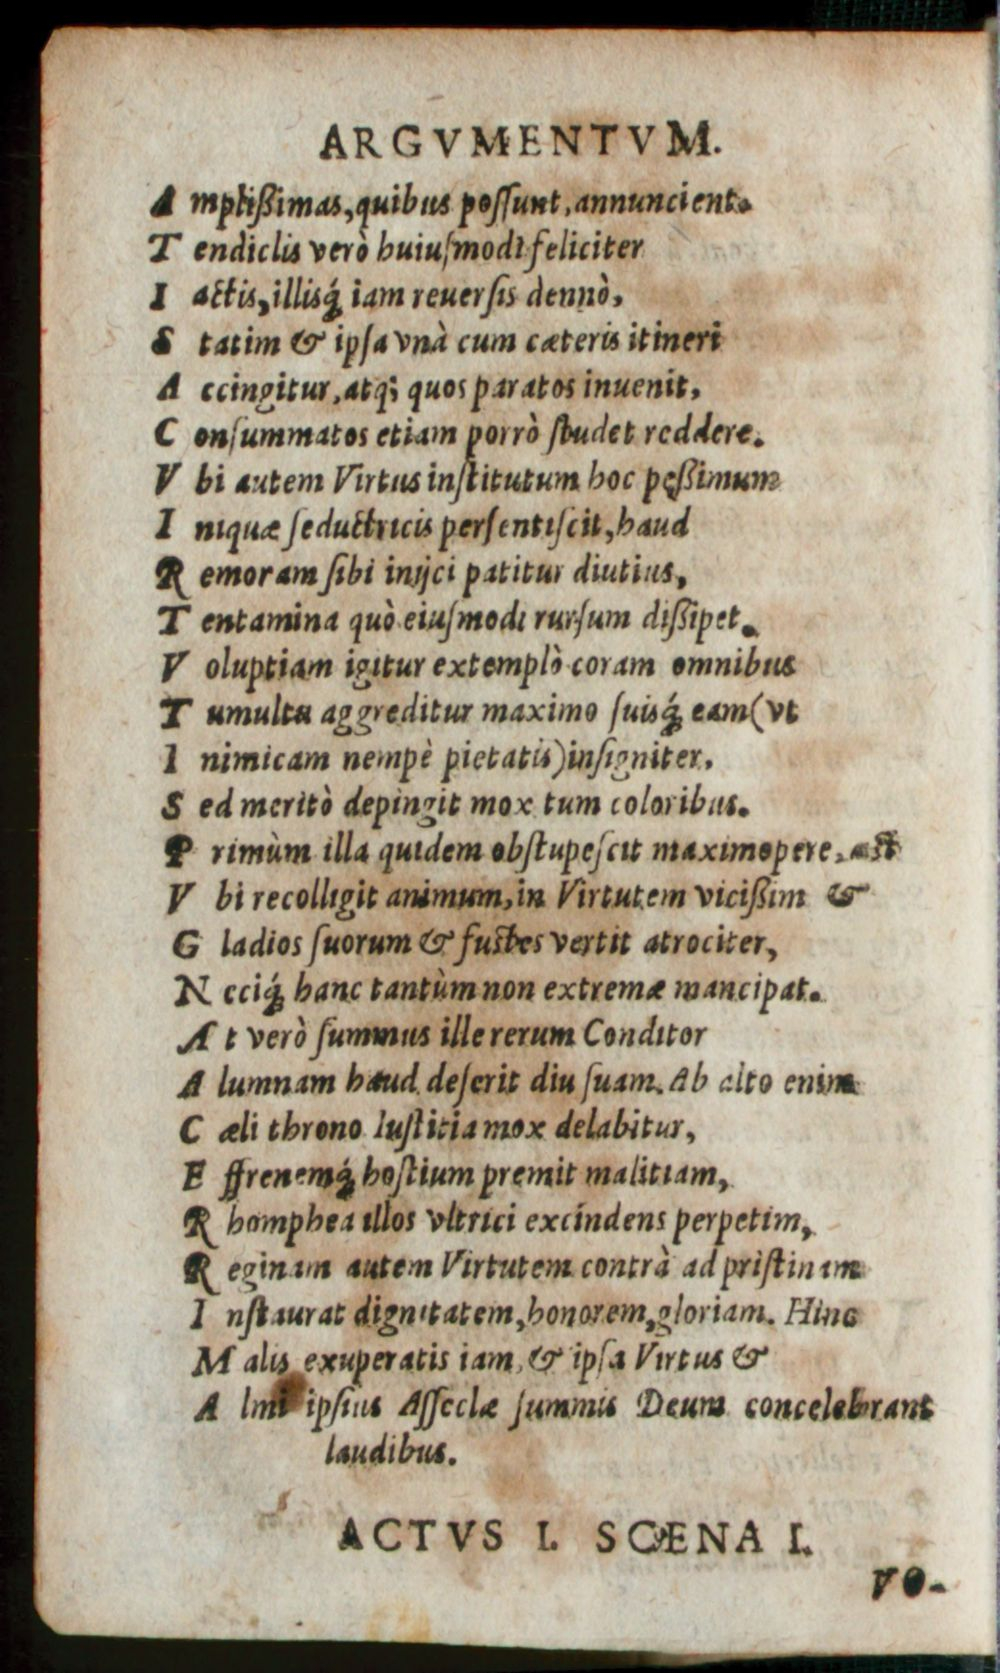 ARGVMENTVM.
A mplißimas, quibus poſſunt, annuncient.
T endiclis verò huiuſmodi feliciter
I actis, illisq́ꝫ iam reuerſis denuò,
S tatim & ipſa vnà cum cæteris itineri
A ccingitur, atqꝫ quos paratos inuenit,
C onſummatos etiam porrò ſtudet reddere.
V bi autem Virtus inſtitutum hoc peßimum
I niquæ ſeductricis perſentiſcit, haud
R emoram ſibi inijci patitur diutius,
T entamina quò eiuſmodi rurſum dißipet.
V oluptiam igitur extemplò coram omnibus
T umultu aggreditur maximo ſuisq́ꝫ eam (vt
I nimicam nempè pietatis) inſigniter,
S ed meritò depingit mox tum coloribus.
P rimùm illa quidem obſtupeſcit maximopere, aſt
V bi recolligit animum, in Virtutem vicißim &
G ladios ſuorum & fuſtes vertit atrociter,
N eciq́ꝫ hanc tantùm non extremæ mancipat.
A t verò ſummus ille rerum Conditor
A lumnam haud deſerit diu ſuam. Ab alto enim
C æli throno Iuſtitia mox delabitur,
E ffrenemq́ꝫ hoſtium premit malitiam,
R homphea illos vltrici excindens perpetim,
R eginam autem Virtutem contrà ad priſtinam
I nſtaurat dignitatem, honorem, gloriam. Hinc
M alis exuperatis iam, & ipſa Virtus &
A lmi ipſius Aſſeclæ ſummis Deum concelebrant
laudibus.
ACTVS I. SCENA I.
VO-